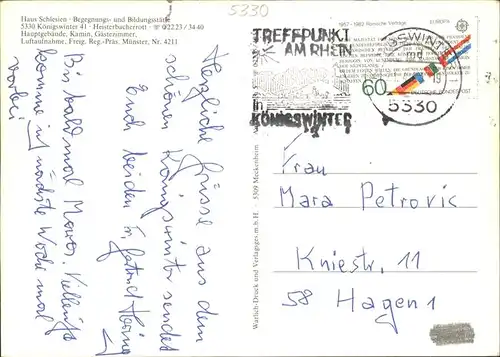 5330
Haus Schlesien · Begegnungs- und Bildungsstätte
5330 Königswinter 41 · Heisterbacherrott · ☎ 0 22 23 / 34 40
Hauptgebäude, Kamin, Gästezimmer,
Luftaufnahme, Freig. Reg.-Präs. Münster, Nr. 4211
Herzliche Grüsse aus dem
schönen Königswinter sendet
Euch beiden
Bis bald mal Mara. Vielleicht
komme ich nächste Woche mal
vorbei
Warlich-Druck und Verlagsges.m.b.H. · 5309 Meckenheim
TREFFPUNKT
AM RHEIN
in
KÖNIGSWINTER
1957-1982 Römische Verträge
EUROPA
60
DEUTSCHE BUNDESPOST
5330
Frau
Mara Petrovic
Kniestr. 11
58 Hagen 1